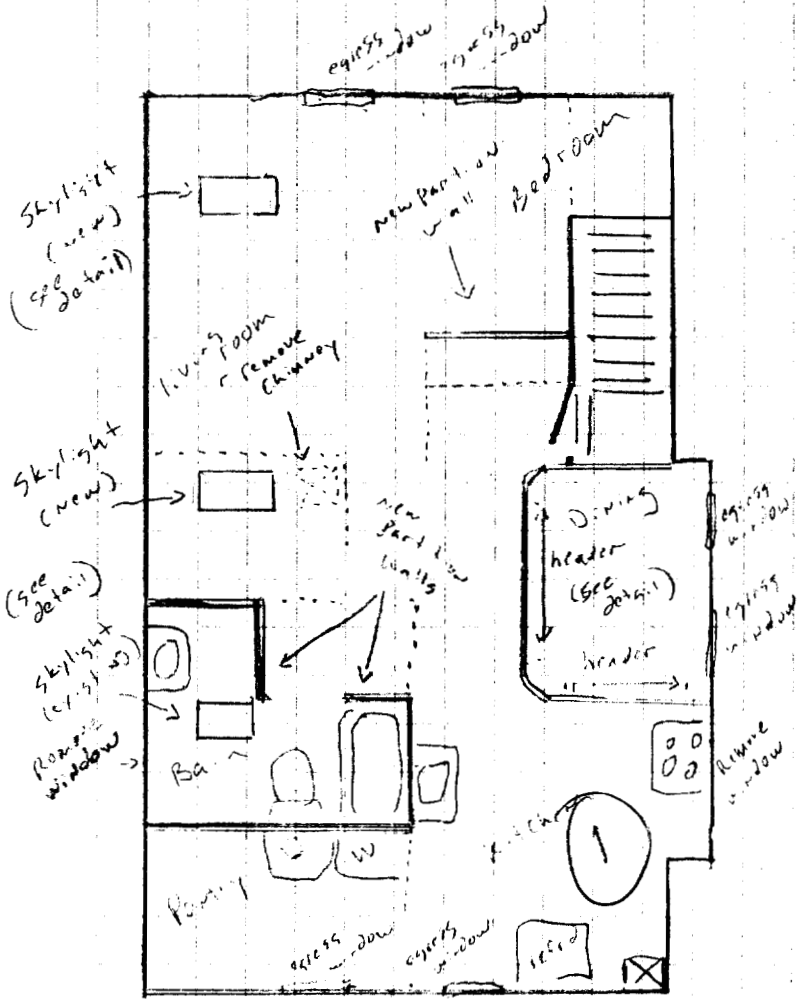 egress
window
egress
window
Skylight
(new)
(see
detail)
new partion
wall
Bedroom
living room
remove
chimney
Skylight
(new)
(see
detail)
new
partion
walls
Dining
header
(see
detail)
header
egress
window
egress
window
Skylight
(existing)
Remove
window
Remove
window
Kitchen
W
Pantry
egress
window
egress
window